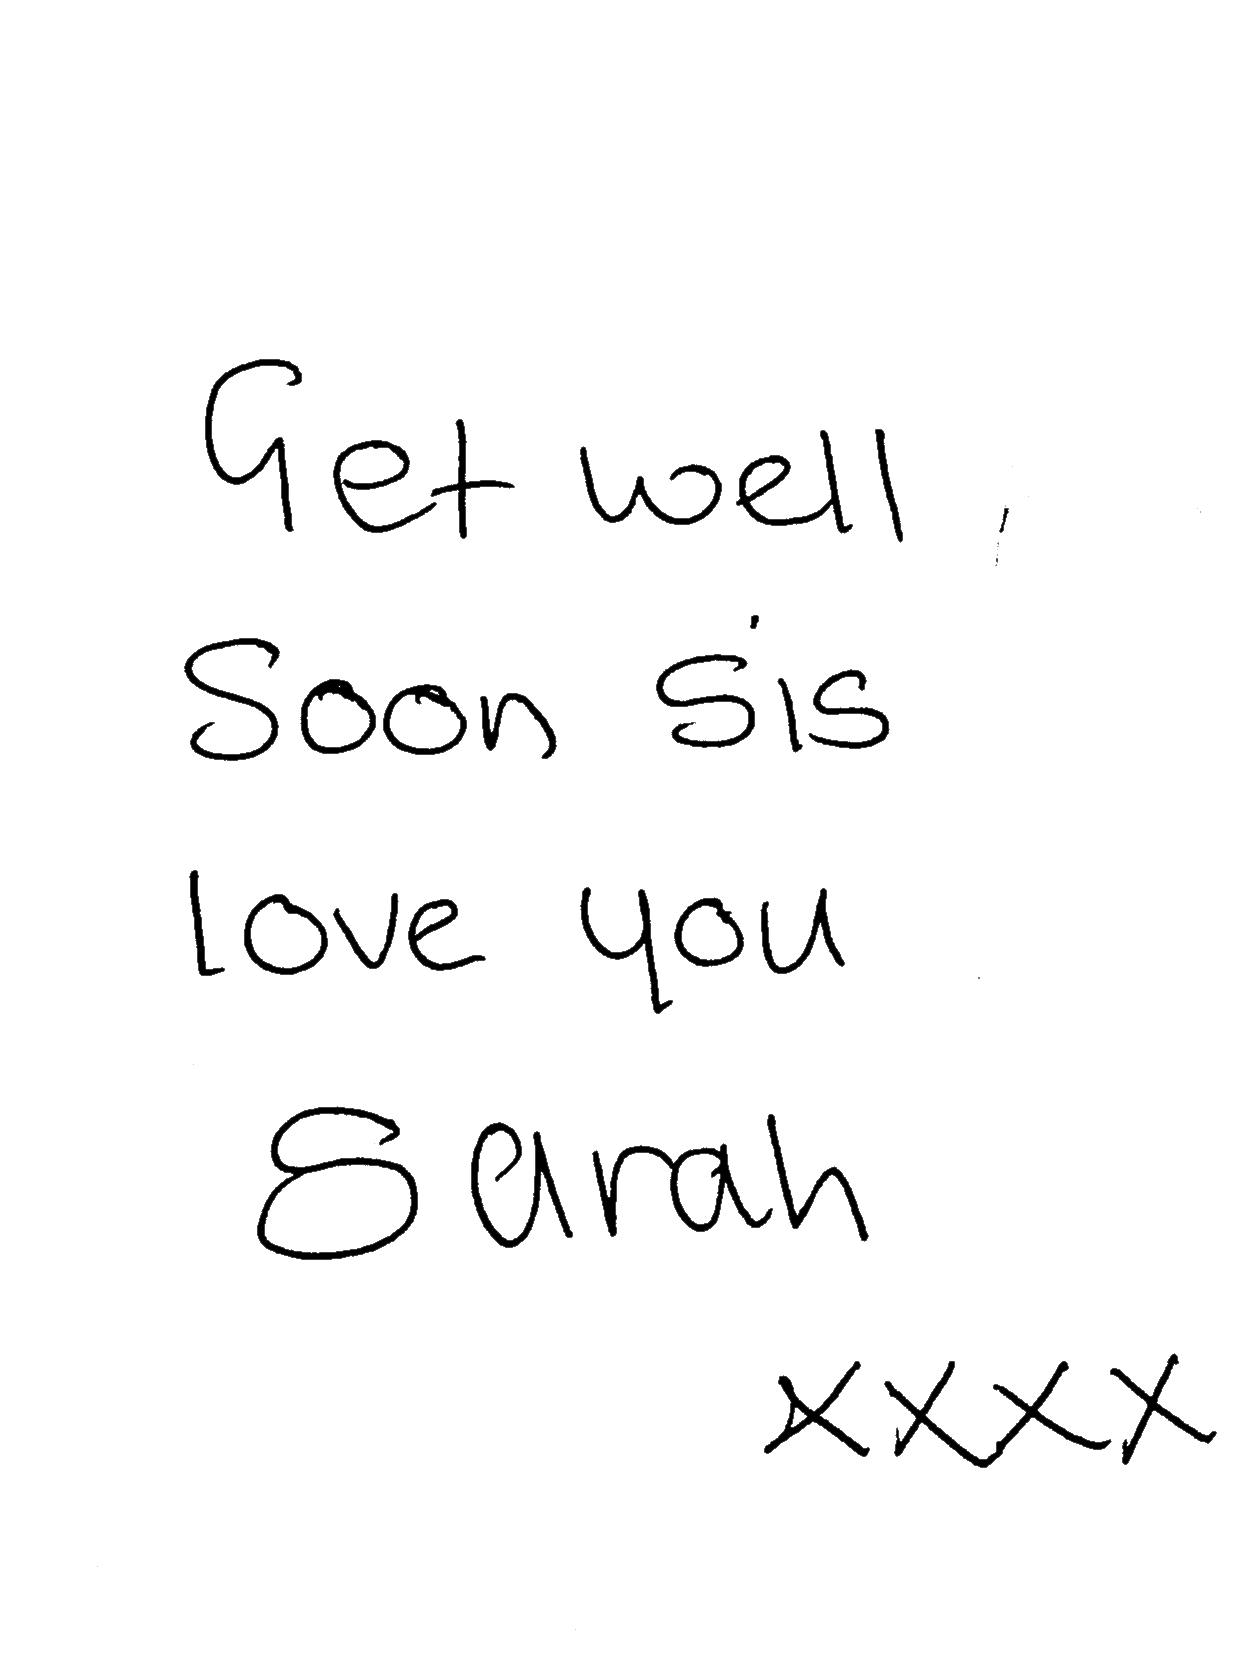 Get well
Soon sis
love you
Sarah
xxxx